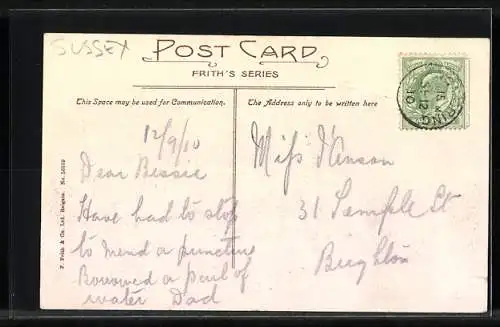 SUSSEX
POST CARD
FRITH'S SERIES
This Space may be used for Communication.
The Address only to be written here
12/9/10
Dear Bessie
Have had to stop
to mend a puncture
Borrowed a pail of
water Dad
Miss
31 Temple St
Brighton
F. Frith & Co. Ltd. Reigate. No.
15
SP 12
10